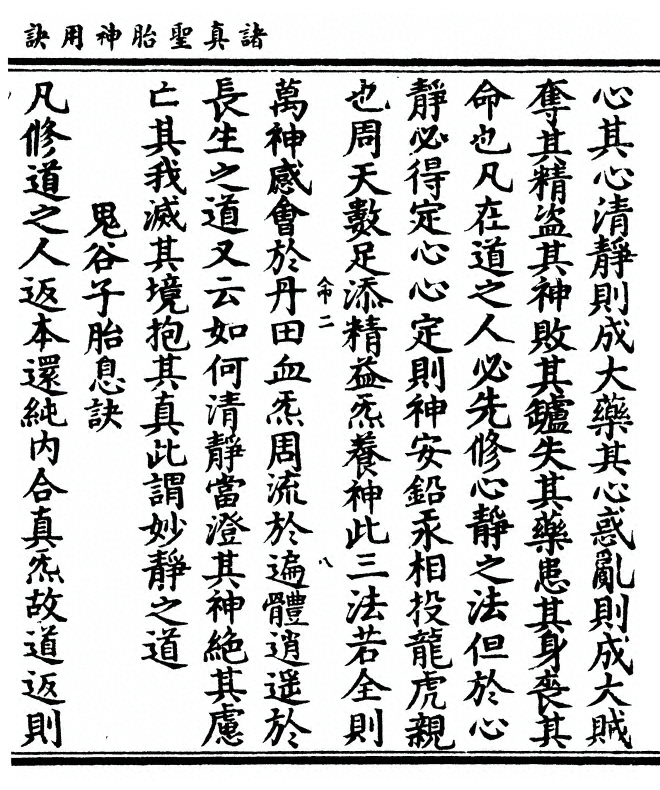 諸真聖胎神用訣
心其心清靜則成大藥其心惑亂則成大賊
奪其精盜其神敗其鑪失其藥患其身喪其
命也凡在道之人必先修心靜之法但於心
靜必得定心心定則神安鉛汞相投龍虎親
也周天數足添精益炁養神此三法若全則
命二
八
萬神感會於丹田血炁周流於遍體逍遥於
長生之道又云如何清靜當澄其神絕其慮
亡其我滅其境抱其真此謂妙靜之道
鬼谷子胎息訣
凡修道之人返本還純内合真炁故道返則